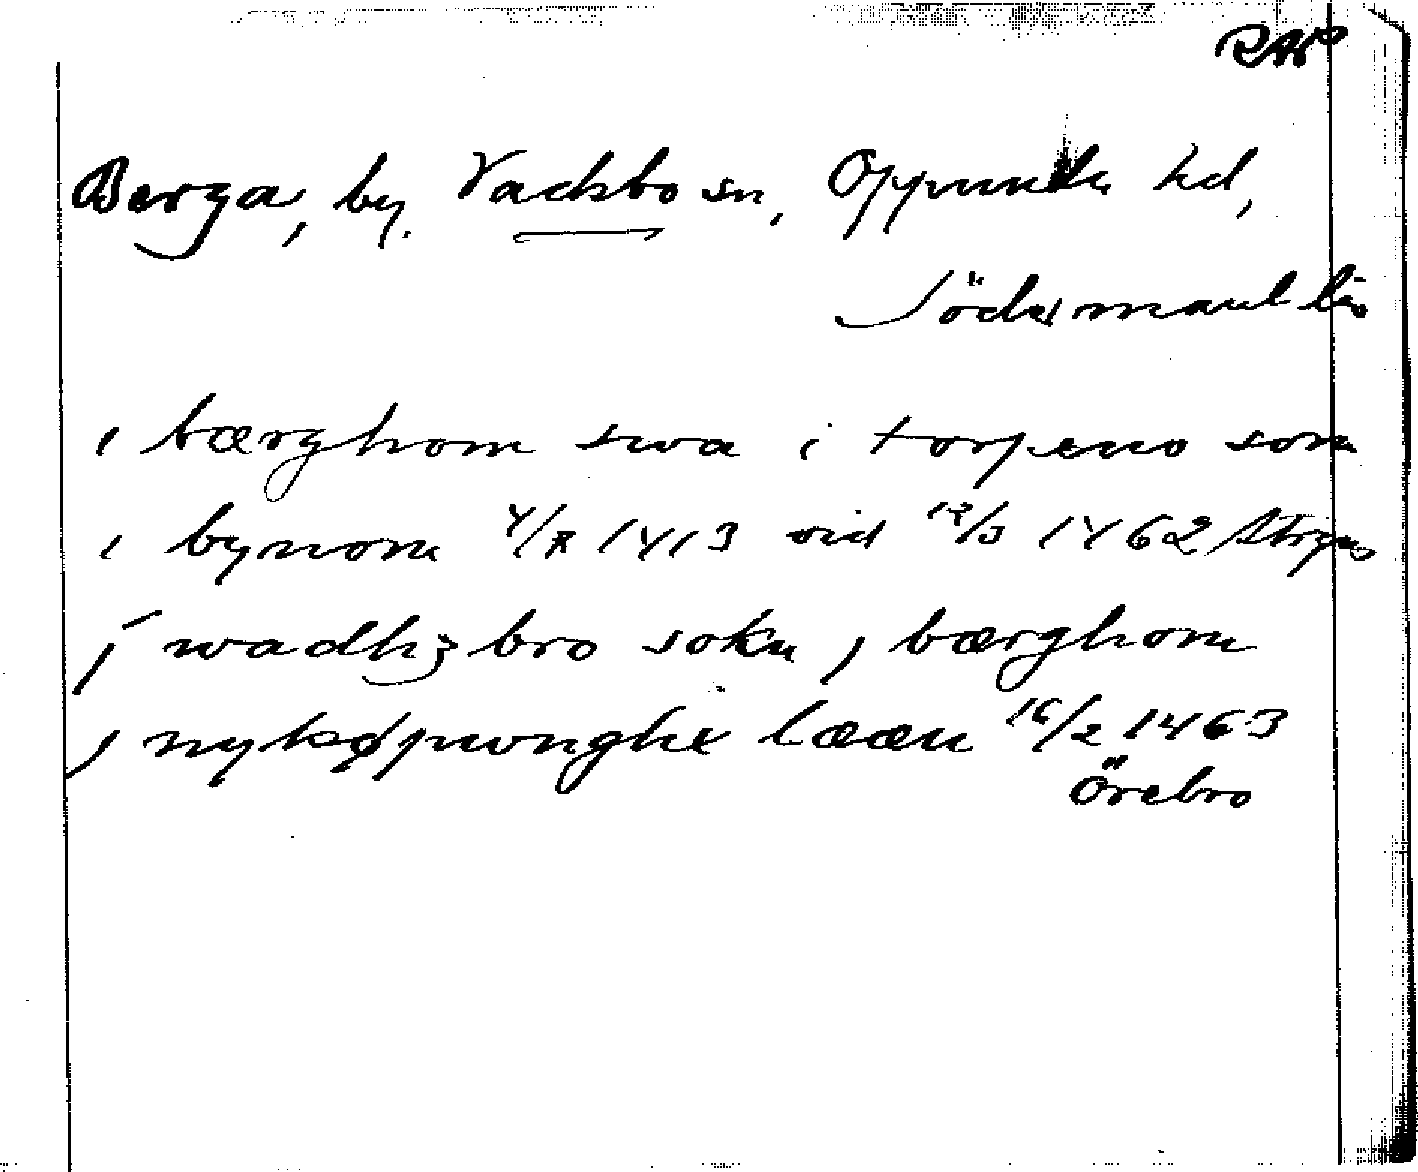 RAp
Berga, by. Vadsbro sn, Oppunda hd,
Södermanl län
i bærghom swa i torpeno som
i bynom 4/7 1413 vid 12/3 1462 Strgns
j wadhzbro sokn j bærghom
j nykøpwnghx lææn 16/2 1463
Örebro